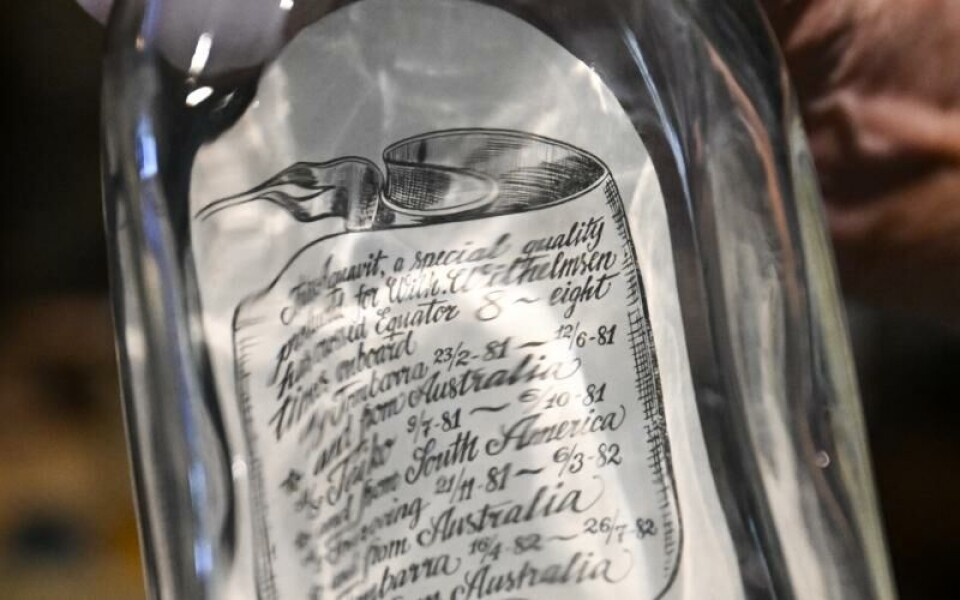 This Aquavit, a special quality
produced for Wilh. Wilhelmsen
has crossed Equator 8 ~ eight
times onboard
Tombarra 23/2-81 ~ 12/6-81
to and from Australia
Tasko 9/7-81 ~ 6/10-81
to and from South America
21/11-81 ~ 6/3-82
to and from Australia
Tombarra 16/4-82 ~ 26/7-82
from Australia